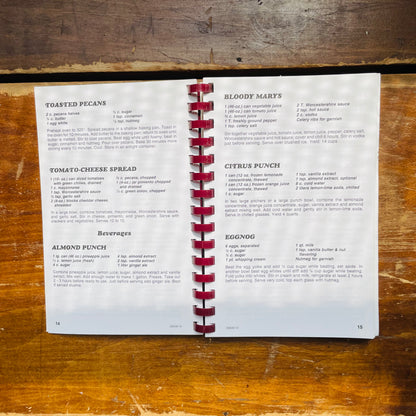 TOASTED PECANS
2 c. pecans halves
¼ c. butter
1 egg white
½ c. sugar
1 tsp. cinnamon
¼ tsp. nutmeg
Preheat oven to 325°. Spread pecans in a shallow baking pan. Toast in
the oven for 10 minutes. Add butter to the baking pan; return to oven until
butter is melted. Stir to blend pecans. Beat egg white until foamy; beat in
sugar, cinnamon and nutmeg. Pour over pecans. Bake 30 minutes more
stirring every 10 minutes. Cool. Store in an airtight container.
TOMATO-CHEESE SPREAD
1 can diced tomatoes
with green chilies, drained
1 c. mayonnaise
1 tsp. Worcestershire
½ tsp. garlic salt
2 blocks cheddar cheese,
shredded
¾ c. pecans, chopped
1 jar pimento chopped
and drained
½ c. green onion, chopped
In a large bowl, combine tomatoes, mayonnaise, Worcestershire sauce,
and garlic salt. Stir in cheese, pimento and green onion. Serve with
crackers and vegetables. Serves 10 to 12.
Beverages
ALMOND PUNCH
1 lg. can pineapple juice
½ c. lemon juice (fresh)
½ c. sugar
4 tsp. almond extract
2 tsp. vanilla extract
1 liter ginger ale
Combine pineapple juice, lemon juice, sugar, almond extract and vanilla
extract. Mix well. Add enough water to make 1 gallon. Freeze. Take out
2 - 3 hours before ready to use. Just before serving add ginger ale. Best
if served slushy.
14
BLOODY MARYS
1 can vegetable juice
1 can tomato juice
½ c. lemon juice
1 T. freshly ground pepper
1 tsp. celery salt
2 T. Worcestershire sauce
2 tsp. hot sauce
2 c. vodka
Celery ribs for garnish
Stir together vegetable juice, tomato juice, lemon juice, pepper, celery salt,
Worcestershire sauce and hot sauce; cover and chill 8 hours. Stir in vodka
just before serving. Serve over crushed ice. Yield: 14 cups.
CITRUS PUNCH
1 can (12 oz. frozen lemonade
concentrate, thawed)
1 can (12 oz.) frozen orange juice
concentrate, thawed
½ c. sugar
1 tsp. vanilla extract
1 tsp. almond extract, optional
6 c. cold water
2 liters lemon-lime soda, chilled
Ice
In two large pitchers or a large punch bowl, combine the lemonade
concentrate, orange juice concentrate, sugar, vanilla extract and almond
extract mixing well. Add cold water and gently stir in lemon-lime soda.
Serve in chilled glasses. Yield 4 quarts.
EGGNOG
4 eggs, separated
½ c. sugar
¼ c. sugar
1 pt. whipping cream
1 qt. milk
1 tsp. vanilla butter & nut
flavoring
Nutmeg for garnish
Beat the egg yolks and add ½ cup sugar while beating, set aside. In
another bowl beat egg whites until stiff add ¼ cup sugar while beating.
Fold yolks into whites. Stir in cream and milk; refrigerate at least 2 hours
before serving. Serve very cold, top each glass with nutmeg.
15